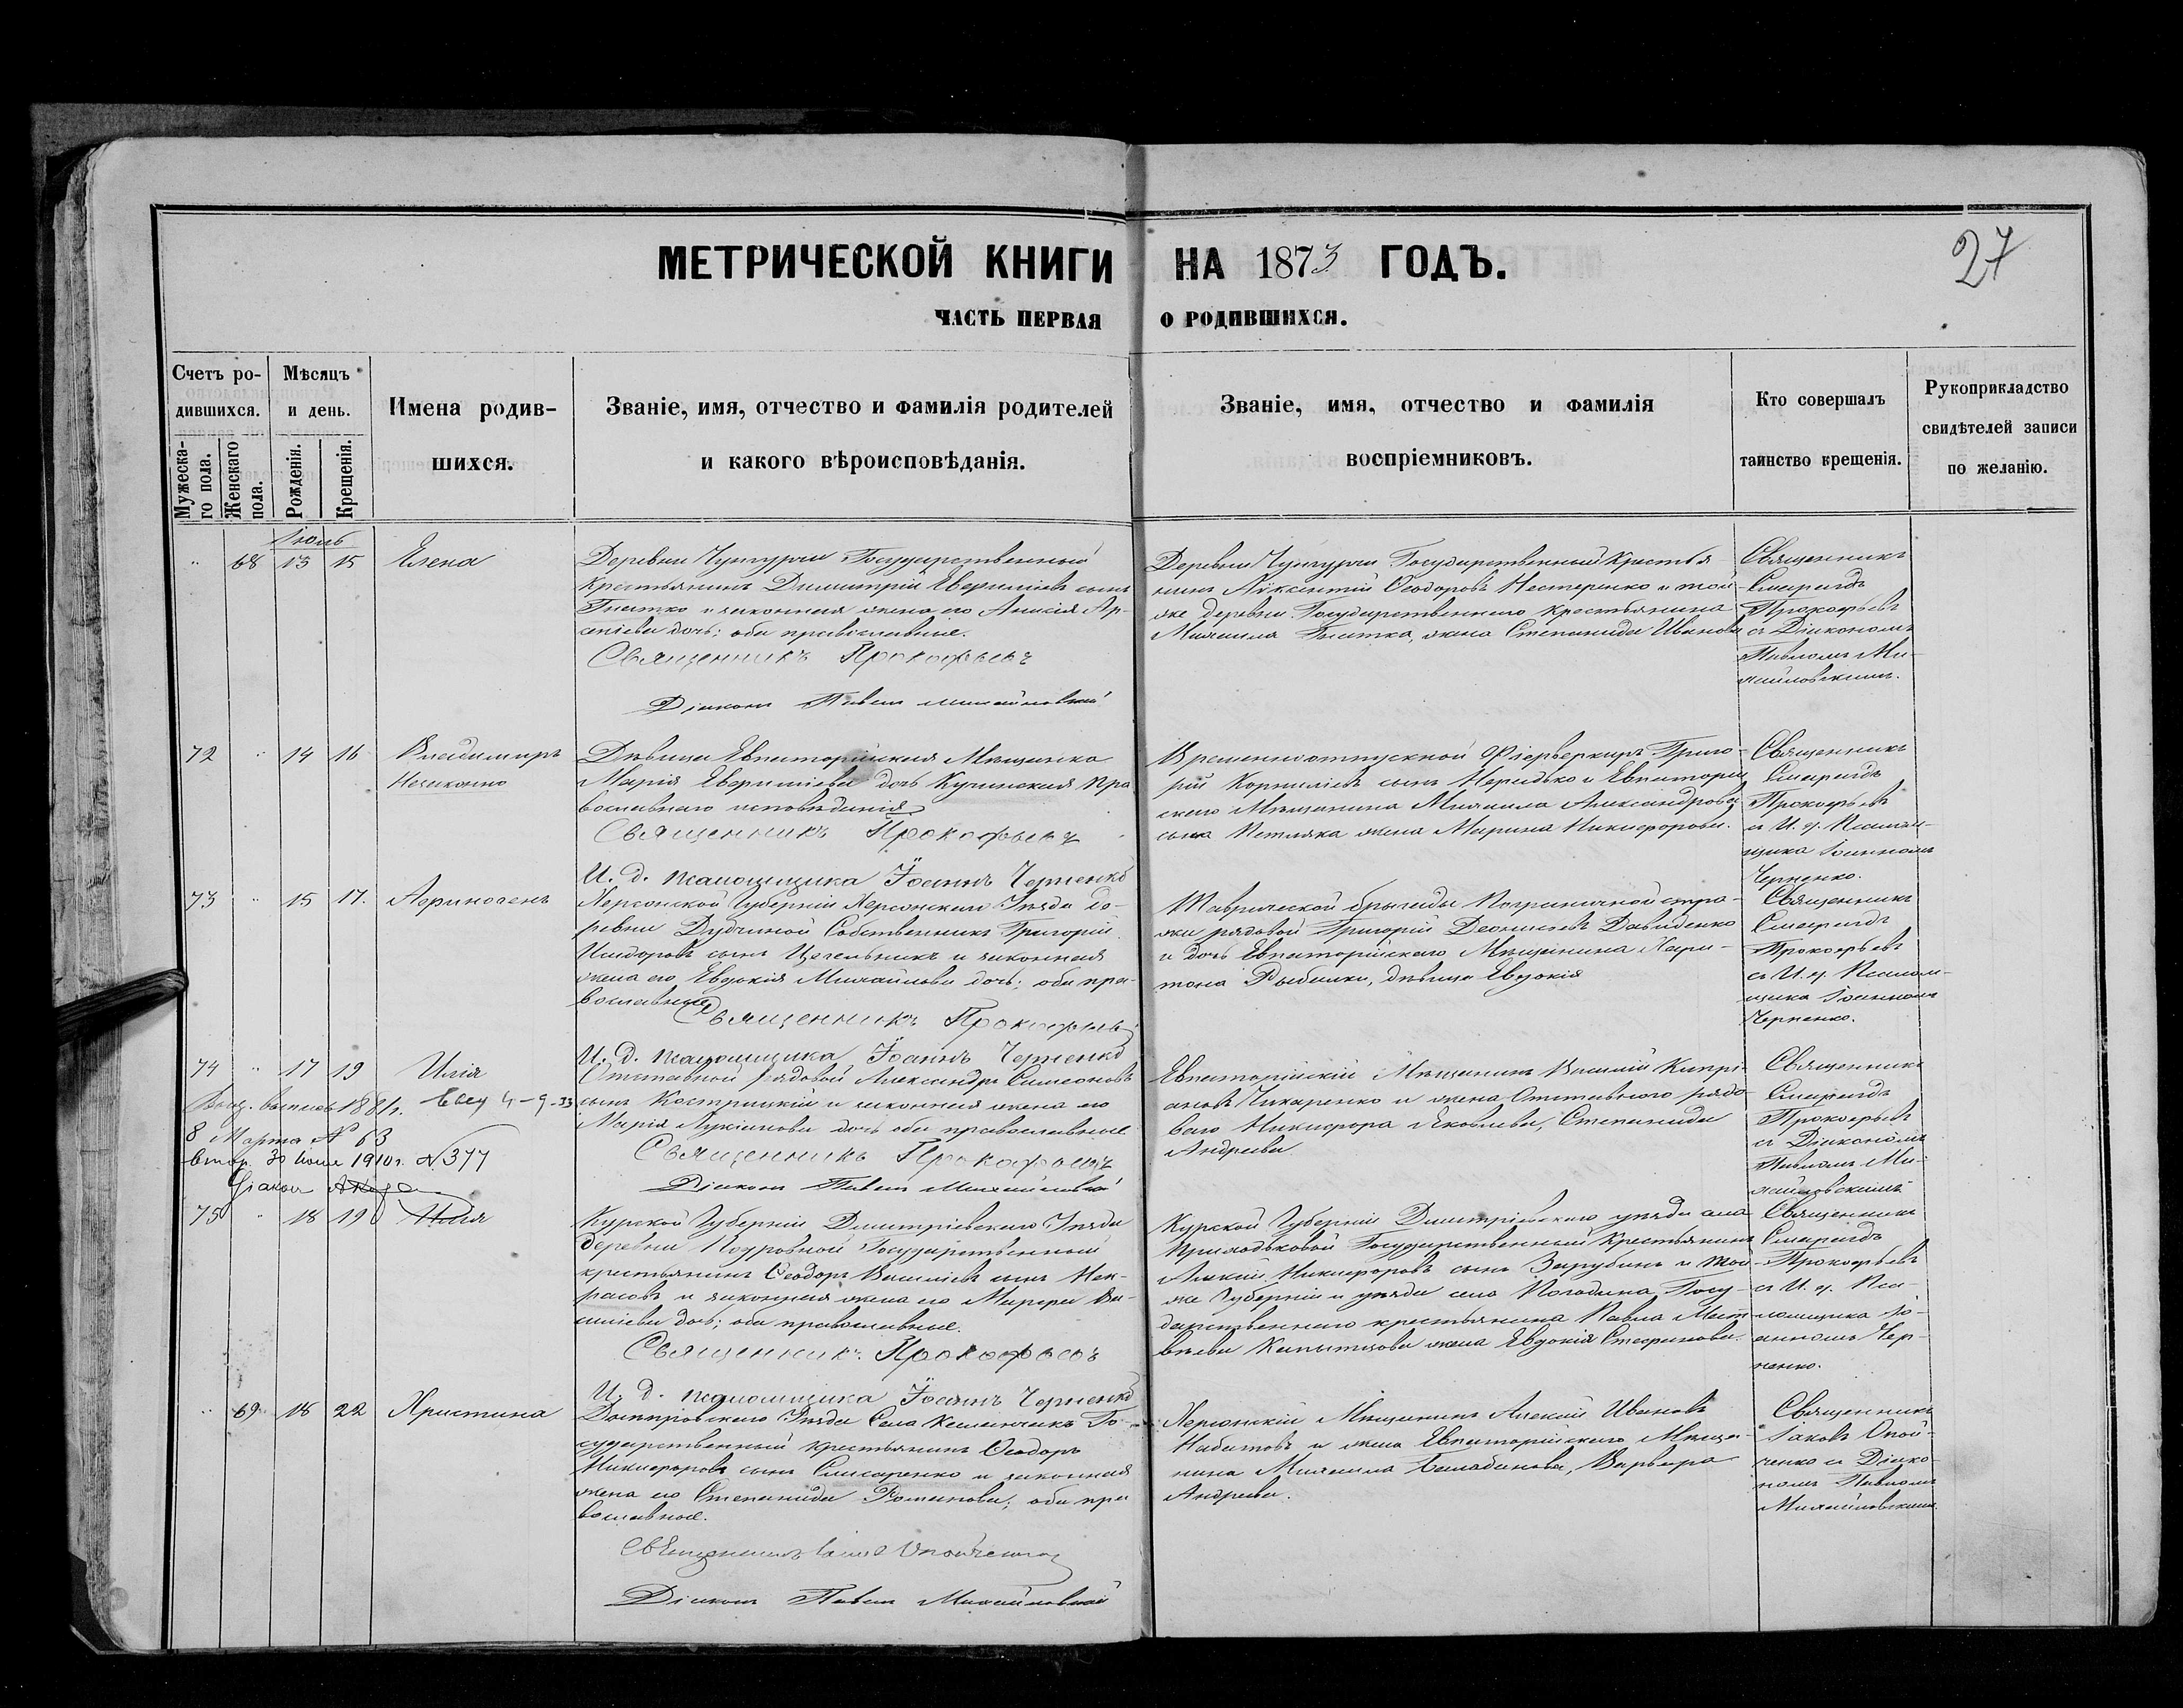 МЕТРИЧЕСКОЙ КНИГИ НА 1873 ГОДЪ.
27
ЧАСТЬ ПЕРВАЯ О РОДИВШИХСЯ.
Счетъ ро-
дившихся.
Мужеска-
го пола.
Женскаго
пола.
Мѣсяцъ
и день.
Рожденія.
Крещенія.
Имена родив-
шихся.
Званіе, имя, отчество и фамилія родителей
и какого вѣроисповѣданія.
Званіе, имя, отчество и фамилія
воспріемниковъ.
Кто совершалъ
таинство крещенія.
Рукоприкладство
свидѣтелей записи
по желанію.
Іюль
68 13 15 Елена
Деревни Государственный
Крестьянинъ Димитрій сынъ
Гнатко и законная жена его Ар-
сеніева дочь; оба православные.
Священникъ Прокофьевъ
Діаконъ Павелъ Михайловскій
Деревни Государственный Крестья
нинъ Авксентій Ѳеодоровъ Нестеренко и той
же деревни Государственнаго крестьянина
Михаила Гнатка, жена Степанида Иванова
Священникъ
Смарагдъ
Прокофьевъ
съ Діакономъ
Павломъ Ми-
хайловскимъ.
72 14 16 Владимиръ
Незаконно
Дѣвица Евпаторійская Мѣщанка
Марія дочь Пра
вославнаго исповѣданія
Священникъ Прокофьевъ
И. д. псаломщика Іоаннъ Черненко
Временноотпускной Фіерверкиръ Григо-
рій Корниліевъ сынъ и Евпаторій
скаго Мѣщанина Михаила Александрова
сына жена Марина Никифорова.
Священникъ
Смарагдъ
Прокофьевъ
съ И. д. Псалом-
щика Іоанномъ
Черненко.
73 15 17. Аѳиногенъ
Херсонской Губерніи Херсонскаго Уѣзда де-
ревни Собственникъ Григорій
Исидоровъ сынъ и законная
жена его Евдокія Михайлова дочь; оба пра-
вославные
Священникъ Прокофьевъ
И. д. псаломщика Іоаннъ Черненко
Таврической бригады Пограничной стра-
жи рядовой Григорій Деонисіевъ Давиденко
и дочь Евпаторійскаго Мѣщанина Хари-
тона дѣвица Евдокія
Священникъ
Смарагдъ
Прокофьевъ
съ И. д. Псалом-
щика Іоанномъ
Черненко.
74 17 19 Илія
Отставной рядовой Александръ Симеоновъ
сынъ Кострицкій и законная жена его
Марія Лукіанова дочь оба православные
Священникъ Прокофьевъ
Діаконъ Павелъ Михайловскій
Евпаторійскій Мѣщанинъ Василій Кипрі-
ановъ Чикаренко и жена Отставнаго рядо-
ваго Никифора Яковлева, Степанида
Андреева
Священникъ
Смарагдъ
Прокофьевъ
съ Діакономъ
Павломъ Ми-
хайловскимъ
1881г. 4-9-33
8 Марта № 63
втор. 30 1910г. №377
Діаконъ
75 18 19 Илія
Курской Губерніи Дмитріевскаго Уѣзда
деревни Государственный
крестьянинъ Ѳеодоръ Василіевъ сынъ Нек-
расовъ и законная жена его Ва-
силіева дочь; оба православные.
Священникъ Прокофьевъ
И. д. псаломщика Іоаннъ Черненко
Курской Губерніи Дмитріевскаго уѣзда села
Государственный Крестьянинъ
Алексій Никифоровъ сынъ Зарубинъ и той
же Губерніи и уѣзда села Погодина Госу-
дарственнаго крестьянина Павла Мат-
вѣева жена Евдокія Стефанова.
Священникъ
Смарагдъ
Прокофьевъ
съ И. д. Пса-
ломщика Іо-
анномъ Чер-
ненко.
69 18 22 Христина
Днепровскаго Уѣзда Села Го-
сударственный крестьянинъ Ѳеодоръ
Никифоровъ сынъ Слисаренко и законная
жена его Степанида Романова; оба пра
вославные.
Священникъ Опойченко
Діаконъ Павелъ Михайловскій
Херсонскій Мѣщанинъ Алексій Ивановъ
Набатовъ и жена Евпаторійскаго Мѣща-
нина Михаила Варвара
Андреева.
Священникъ
Іаковъ Опой-
ченко съ Діако-
номъ Павломъ
Михайловскимъ.